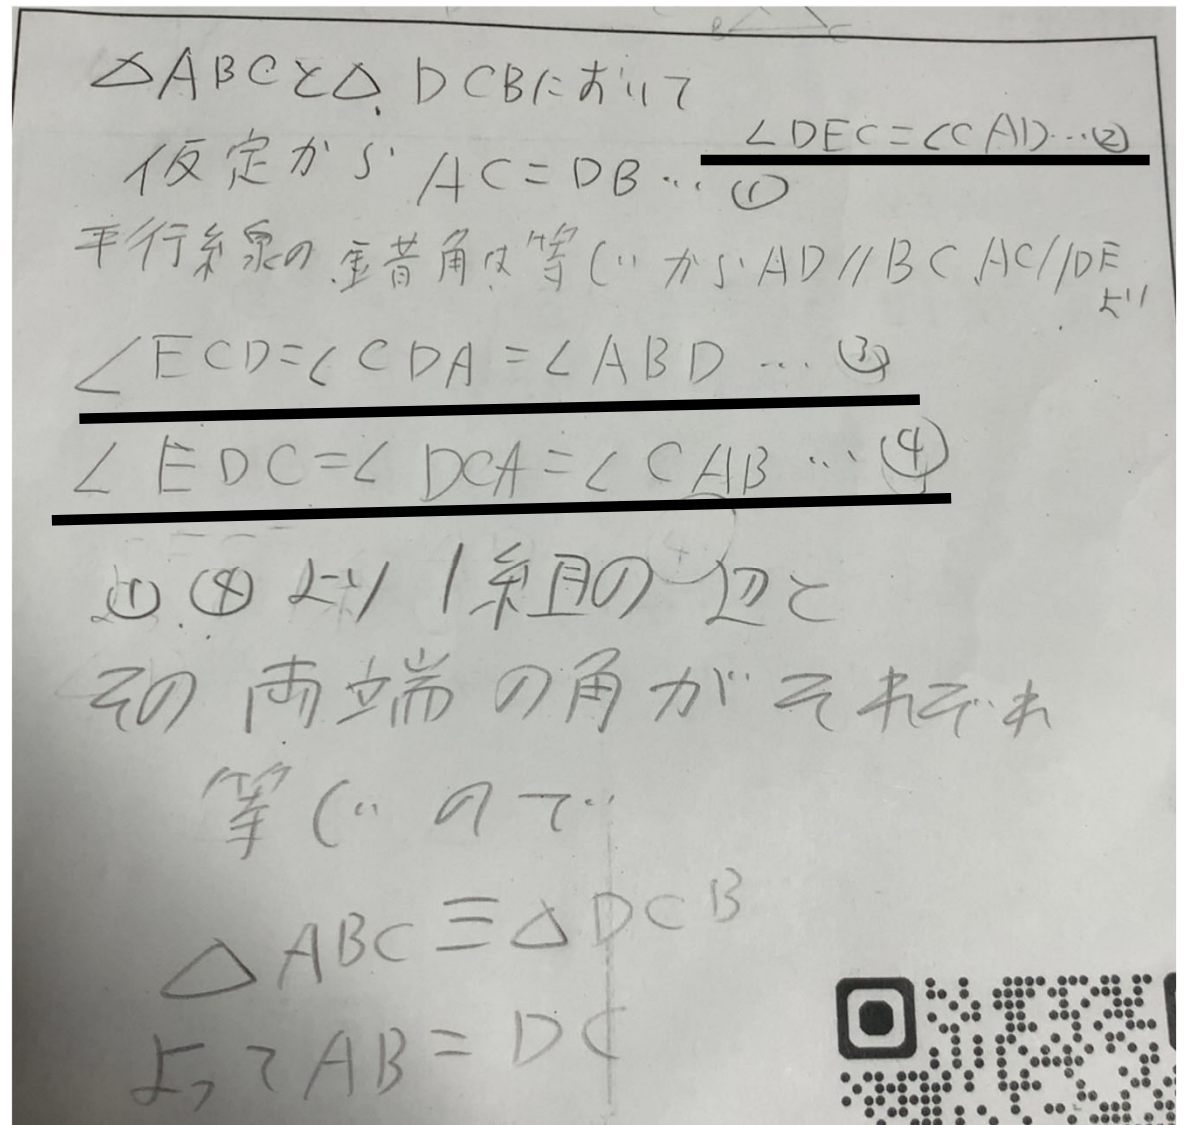 B C
△ABCと△DCBにおいて
∠DEC=∠CAD…②
仮定から AC=DB…①
平行線の錯角は等しいから AD//BC, AC//DE
より
∠ECD=∠CDA=∠ABD…③
∠EDC=∠DCA=∠CAB…④
①,④より1組の辺と
その両端の角がそれぞれ
等しいので
△ABC≡△DCB
よってAB=DC